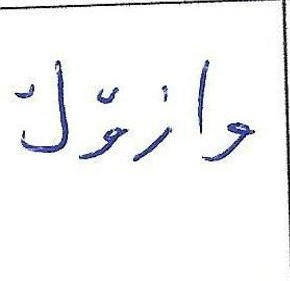 وازوّل